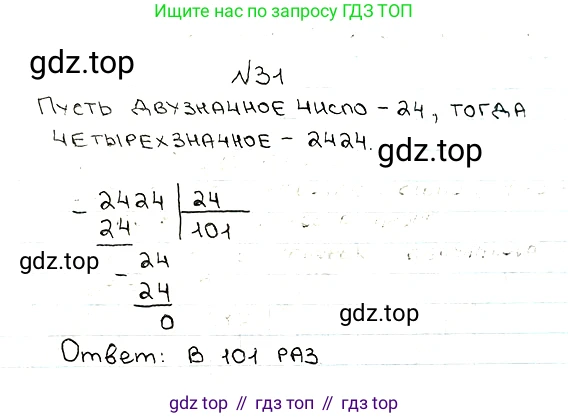 Ищите нас по запросу ГДЗ ТОП
gdz.top
№31
Пусть двузначное число - 24, тогда
четырехзначное - 2424.
gdz.top
- 2424 | 24
24 101
gdz.top
- 24
24
0
gdz.top
Ответ: в 101 раз
gdz.top // gdz.top // gdz.top